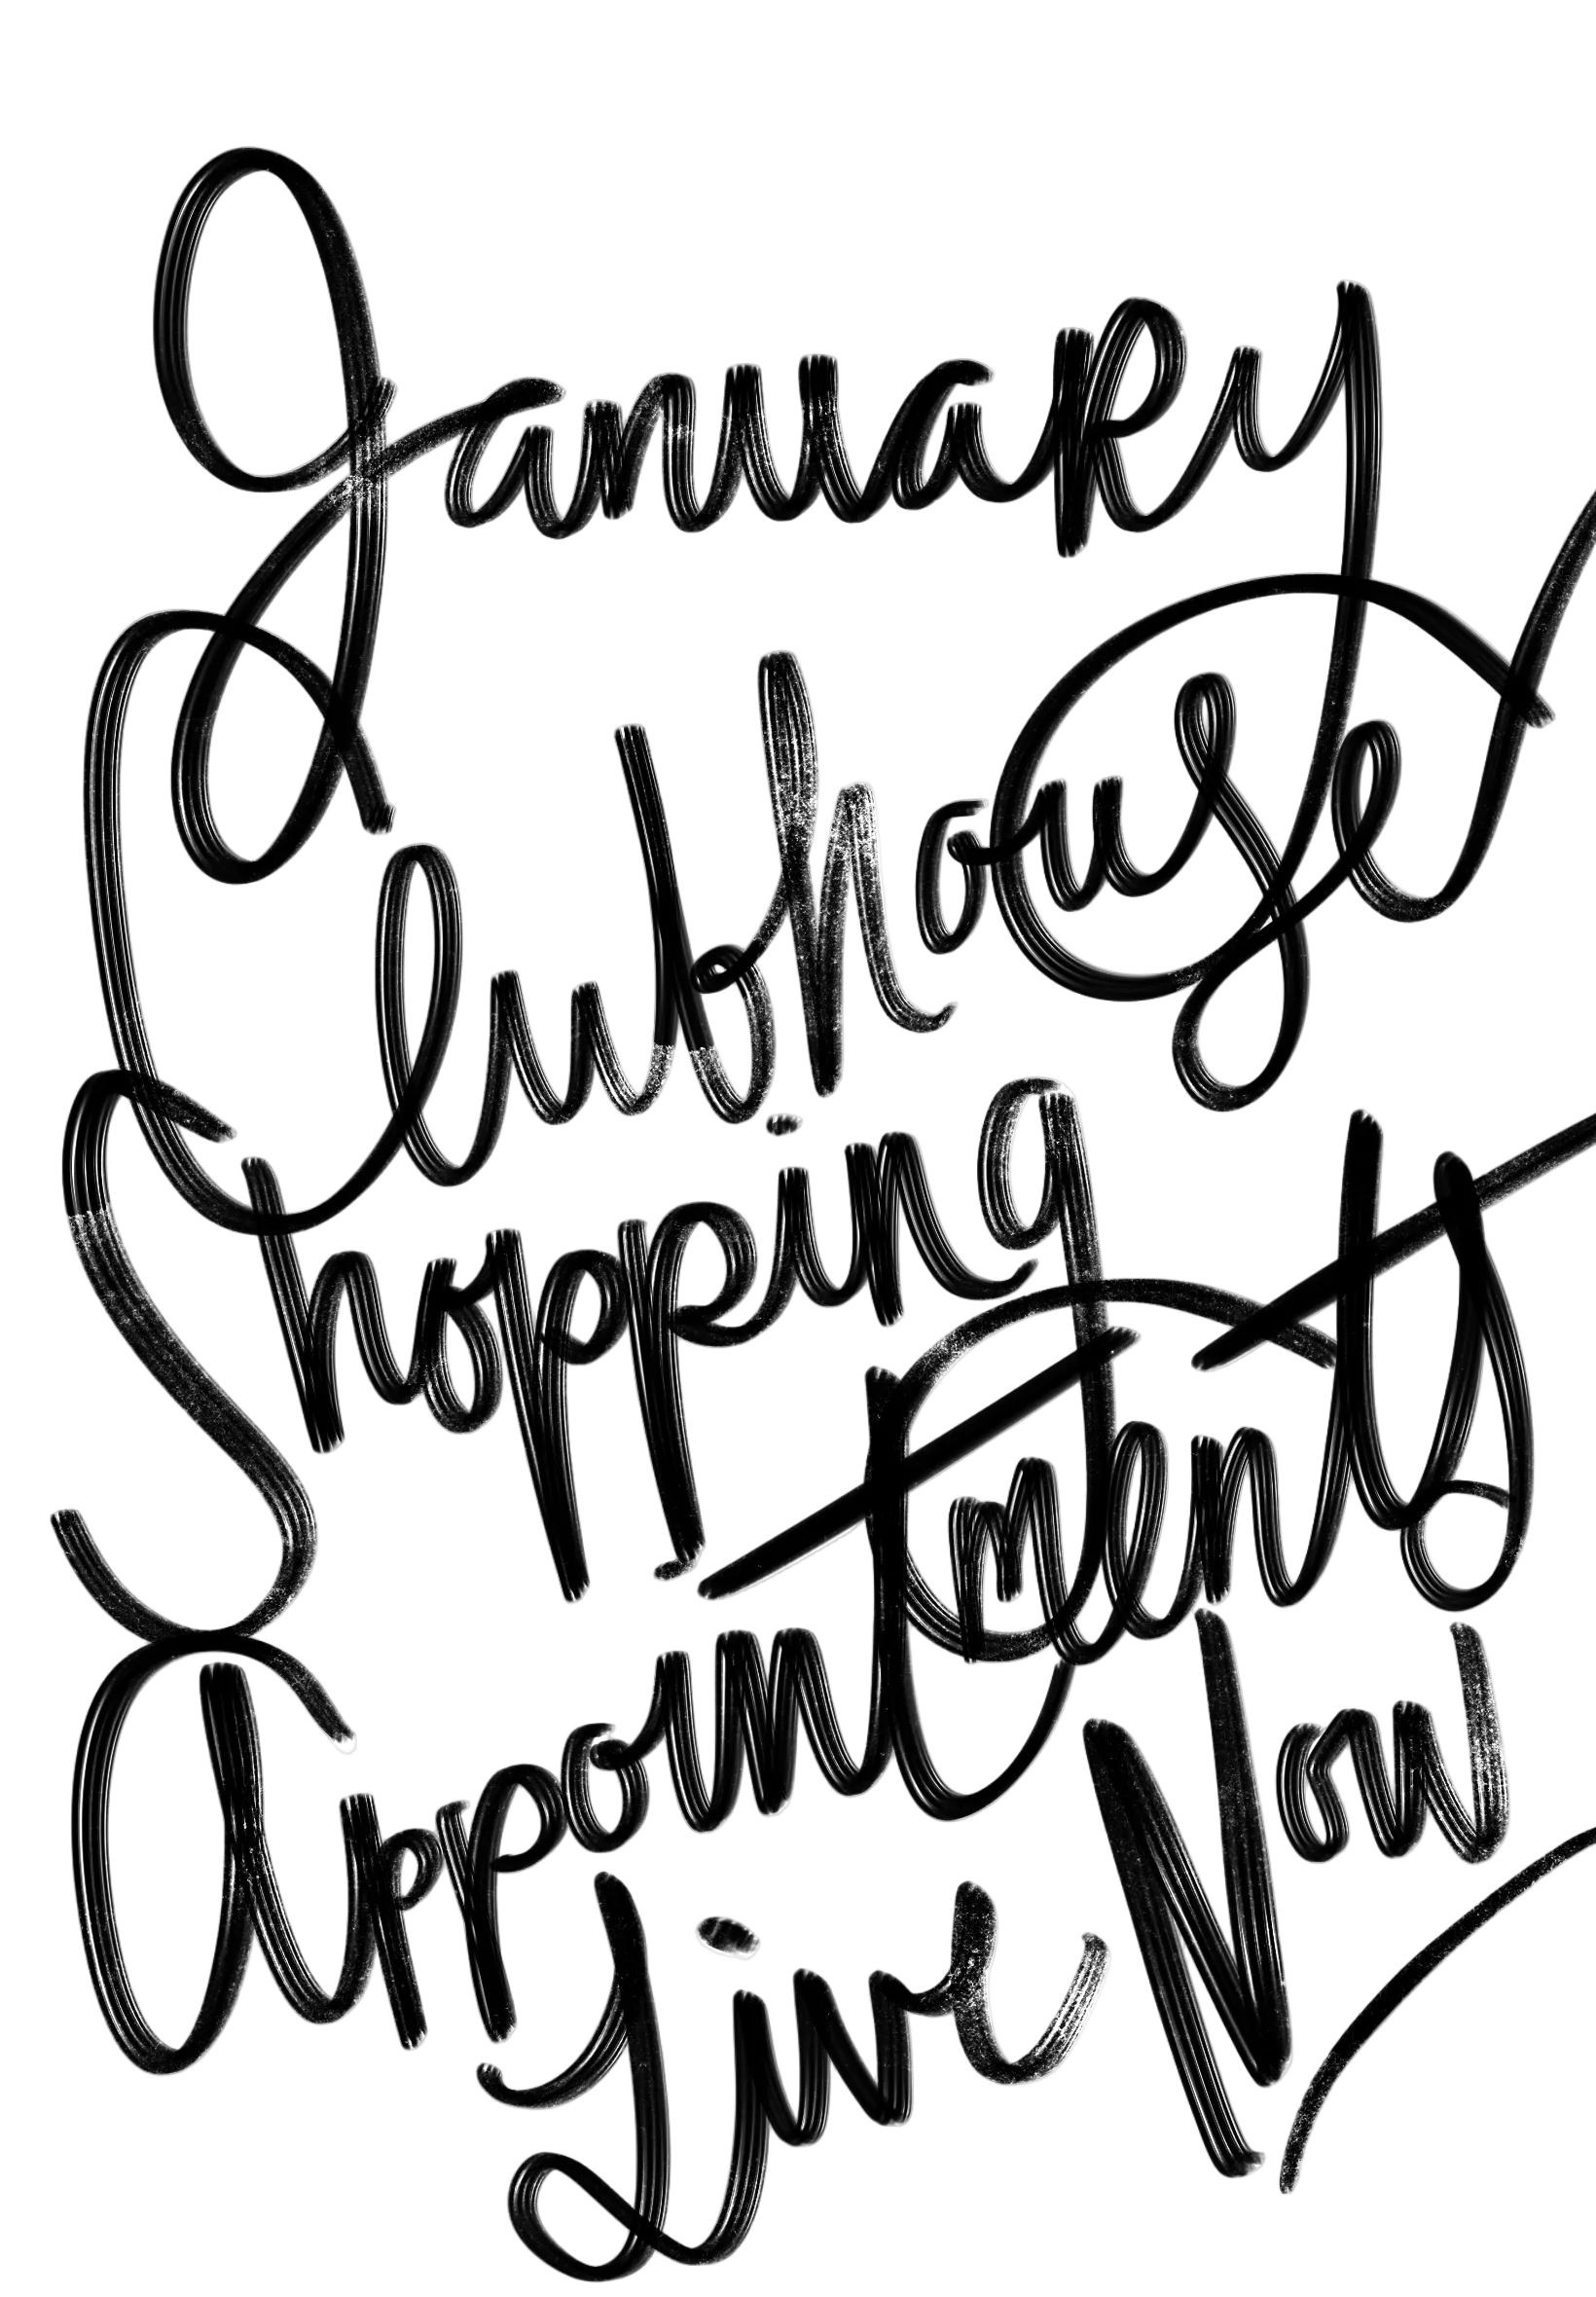 January
Clubhouse
Shopping
Appointments
Live Now